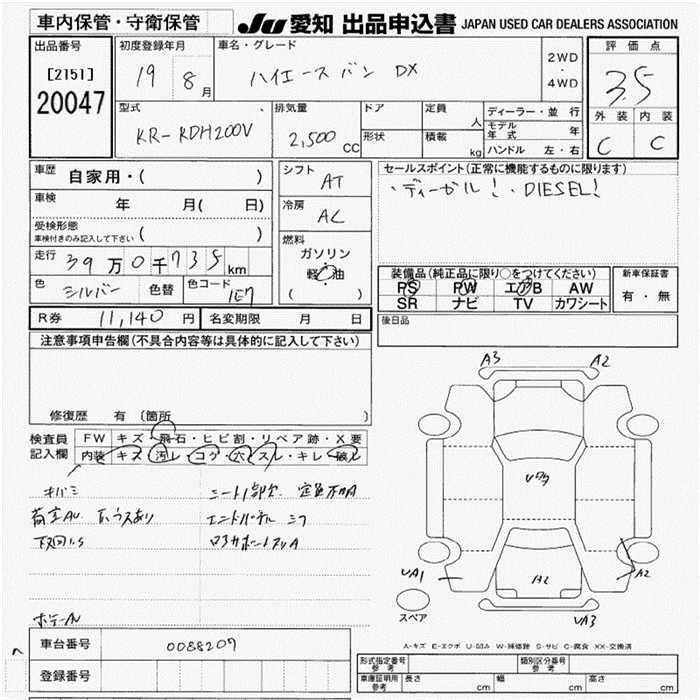 車内保管・守衛保管
JU 愛知 出品申込書 JAPAN USED CAR DEALERS ASSOCIATION
出品番号
[2151]
20047
初度登録年月
19 8月
車名・グレード
ハイエース バン DX
2WD
・
4WD
評価点
3.5
外装 内装
C C
型式
KR-KDH200V
排気量
2,500 CC
ドア
形状
定員 人
積載 kg
ディーラー・並行
モデル年式 年
ハンドル 左・右
車歴 自家用・( )
車検 年 月( 日)
受検形態
車検付きのみ記入して下さい ( )
走行 39万0千735km
色 シルバー 色替 色コード 1E7
シフト AT
冷房 AC
燃料
ガソリン
・
軽油
( )
セールスポイント(正常に機能するものに限ります)
・ディーゼル!・DIESEL!
装備品(純正品に限り○をつけてください)
PS PW エアB AW
SR ナビ TV カワシート
新車保証書
有・無
R券 11,140 円 名変期限 月 日
後日品
注意事項申告欄(不具合内容等は具体的に記入して下さい)
修復歴 有 (箇所 )
検査員
記入欄
FW キズ・飛石・ヒビ割・リペア跡・X要
内装 キズ・汚レ・コゲ・穴・スレ・キレ・破レ
A3 A2
A2
UA1 A2
UA3
スペア
A-キズ E-エクボ U-凹み W-補修跡 S-サビ C-腐食 XX-交換済
車台番号 0088207
登録番号
型式指定番号
参考
類別区分番号
参考
車庫証明用
参考
長さ cm 幅 cm 高さ cm